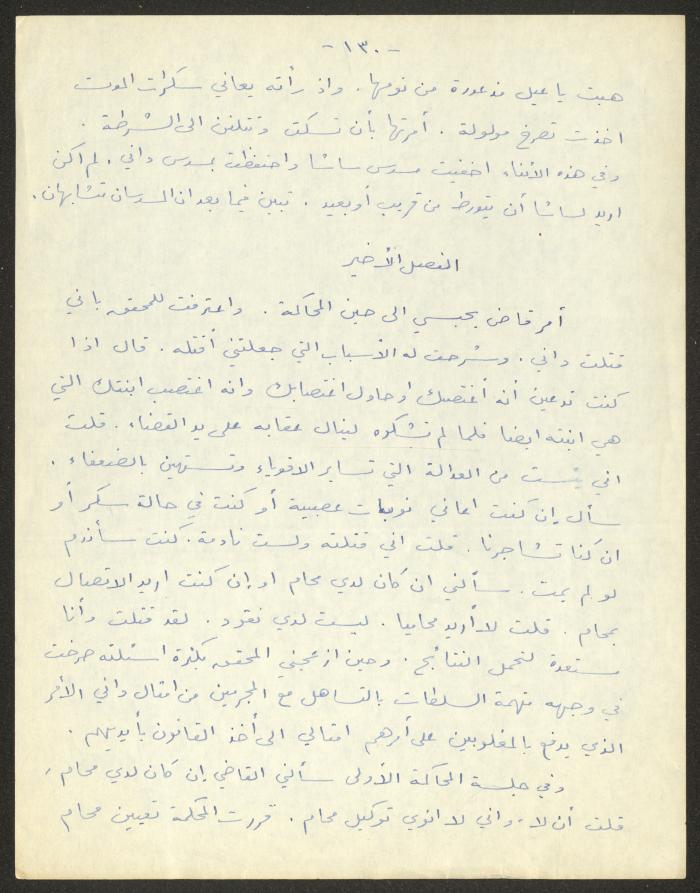 -١٣٠-
هبت ياعيل مذعورة من نومها. واذ رأته يعاني سكرات الموت
اخذت تصرخ مولولة. أمرتها بأن تسكت وتتلفن الى الشرطة.
وفي هذه الأثناء اخفيت مسدس ساشا واحتفظت بمسدس داني. لم اكن
اريد لساشا أن يتورط من قريب أو بعيد. تبين فيما بعد ان المسدسان متشابهان.
الفصل الأخير
أمر قاض بحبسي الى حين المحاكمة. واعترفت للمحقق باني
قتلت داني. وشرحت له الأسباب التي جعلتني أقتله. قال اذا
كنت تدعين أنه أغتصبك او حاول اغتصابك وانه اغتصب ابنتك التي
هي ابنته ايضا فلما لم تشكوه لينال عقابه على يد القضاء. قلت
اني يئست من العدالة التي تساير الاقوياء وتستهين بالضعفاء.
سأل إن كنت اعاني نوبات عصبية أو كنت في حالة سكر أو
ان كنا تشاجرنا. قلت اني قتلته ولست نادمة. كنت سأندم
لو لم يمت. سألني ان كان لدي محام او إن كنت اريد الاتصال
بمحام. قلت لا أريد محاميا. ليست لدي نقود. لقد قتلت وأنا
مستعدة لتحمل النتائج. وحين ازعجني المحقق بكثرة اسئلته صرخت
في وجهه متهمة السلطات بالتساهل مع المجرمين من امثال داني الأمر
الذي يدفع بالمغلوبين على أمرهم امثالي الى أخذ القانون بأيديهم.
وفي جلسة المحاكمة الأولى سألني القاضي إن كان لدي محام،
قلت أن لا، واني لا انوي توكيل محام. قررت المحكمة تعيين محام